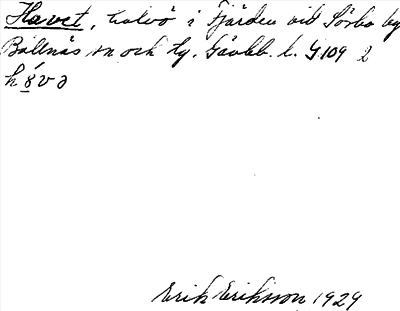 Havet, halvö i Fjärden vid Sörbo by
Bollnäs sn och tg. Gävleb. l. G 109 2
Erik Eriksson 1929